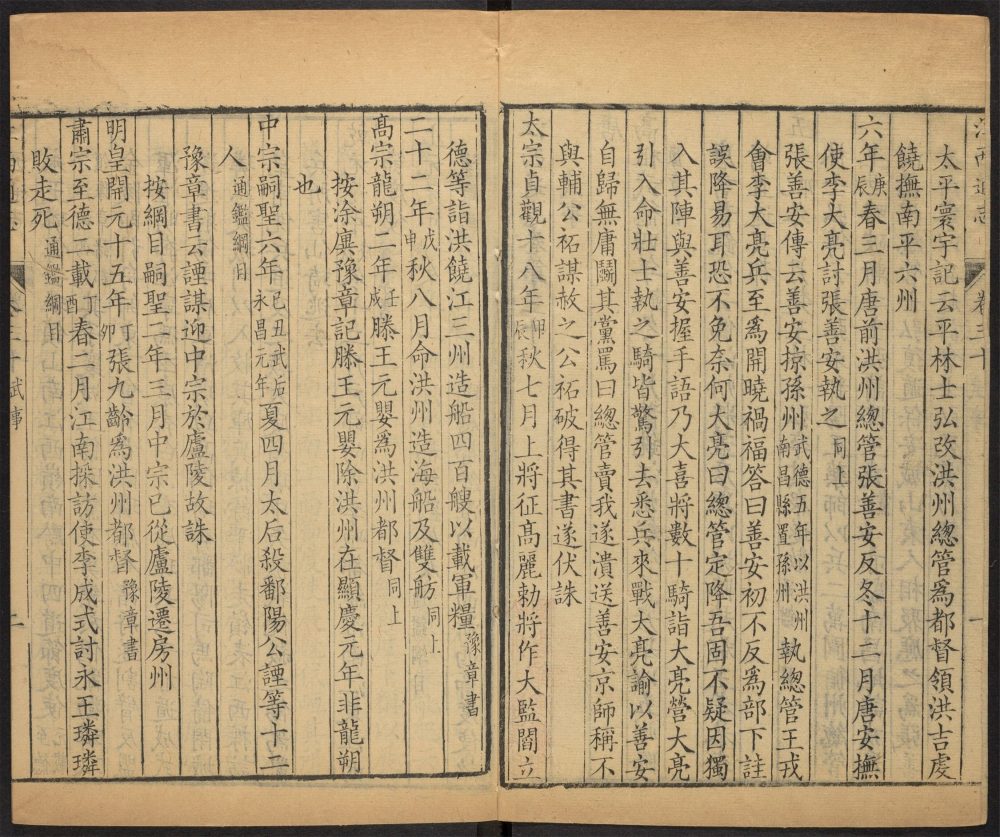 江西通志 卷三十 一
太平寰宇記云平林士弘改洪州總管爲都督領洪吉虔
饒撫南平六州
六年庚辰春三月唐前洪州總管張善安反冬十二月唐安撫
使李大亮討張善安執之同上
張善安傳云善安掠孫州武德五年以洪州南昌縣置孫州執總管王戎
會李大亮兵至爲開曉禍福答曰善安初不反爲部下詿
誤降易耳恐不免奈何大亮曰總管定降吾固不疑因獨
入其陣與善安握手語乃大喜將數十騎詣大亮營大亮
引入命壯士執之騎皆驚引去悉兵來戰大亮諭以善安
自歸無庸鬭其黨罵曰總管賣我遂潰送善安京師稱不
與輔公祏謀赦之公祏破得其書遂伏誅
太宗貞觀十八年甲辰秋七月上將征高麗勅將作大監閻立
德等詣洪饒江三州造船四百艘以載軍糧豫章書
二十二年戊申秋八月命洪州造海船及雙舫同上
高宗龍朔二年壬戌滕王元嬰爲洪州都督同上
按涂廙豫章記滕王元嬰除洪州在顯慶元年非龍朔
也
中宗嗣聖六年己丑武后永昌元年夏四月太后殺鄱陽公諲等十二
人通鑑綱目
豫章書云諲謀迎中宗於廬陵故誅
按綱目嗣聖二年三月中宗已從廬陵遷房州
明皇開元十五年丁卯張九齡爲洪州都督豫章書
肅宗至德二載丁酉春二月江南採訪使李成式討永王璘璘
敗走死通鑑綱目
武事